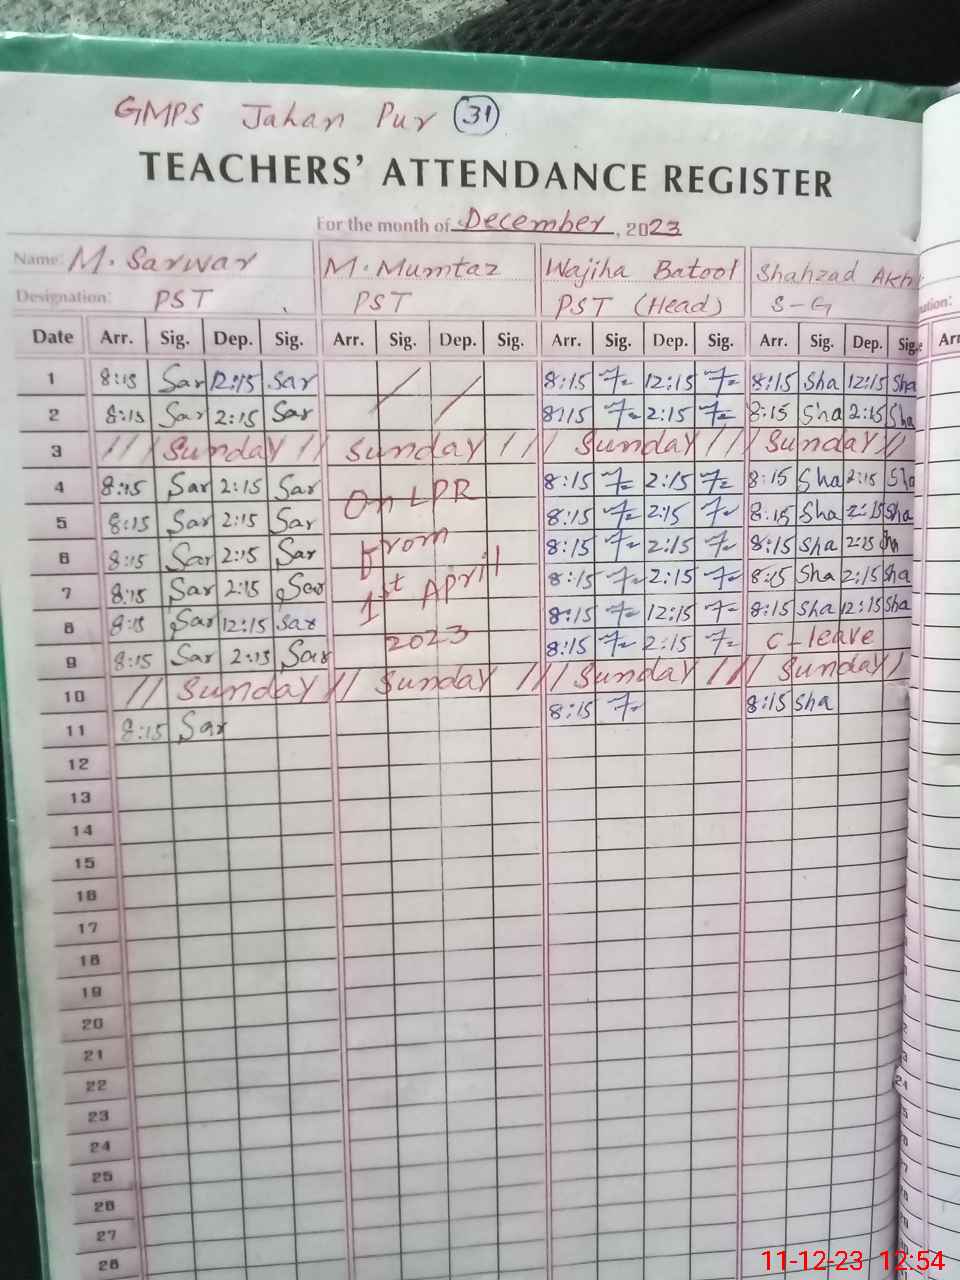 GMPS Jahan Pur 31
TEACHERS' ATTENDANCE REGISTER
For the month of December, 2023
Name: M. Sarwar M. Mumtaz Wajiha Batool Shahzad Akh
Designation: PST PST PST (Head) S-G
Date Arr. Sig. Dep. Sig. Arr. Sig. Dep. Sig. Arr. Sig. Dep. Sig. Arr. Sig. Dep. Sig.
1 8:15 Sar 12:15 Sar 8:15 12:15 8:15 Sha 12:15 Sha
2 8:15 Sar 2:15 Sar 8:15 2:15 8:15 Sha 2:15 Sha
3 Sunday Sunday Sunday Sunday
4 8:15 Sar 2:15 Sar On LPR 8:15 2:15 8:15 Sha 2:15 Sha
5 8:15 Sar 2:15 Sar 8:15 2:15 8:15 Sha 2:15 Sha
6 8:15 Sar 2:15 Sar from 8:15 2:15 8:15 Sha 2:15
7 8:15 Sar 2:15 Sar 1st April 8:15 2:15 8:15 Sha 2:15 Sha
8 8:15 Sar 12:15 Sar 2023 8:15 12:15 8:15 Sha 12:15 Sha
9 8:15 Sar 2:15 Sar 8:15 2:15 C-leave
10 Sunday Sunday Sunday Sunday
11 8:15 Sar 8:15 8:15 Sha
12
13
14
15
16
17
18
19
20
21
22
23
24
25
26
27
28
11-12-23 12:54